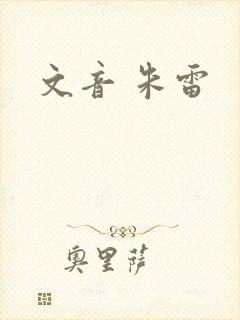 文音 朱雷
奥里萨